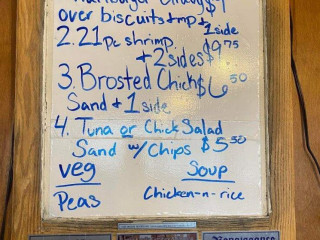 Hamburger Gravy
over biscuits + mp +
1side
2. 21 pc shrimp. $9.75
+ 2 sides
3. Brosted Chick $6.50
Sand + 1 side
4. Tuna or Chick Salad
Sand w/ Chips $5.50
veg Soup
Peas Chicken-n-rice
Renaissance